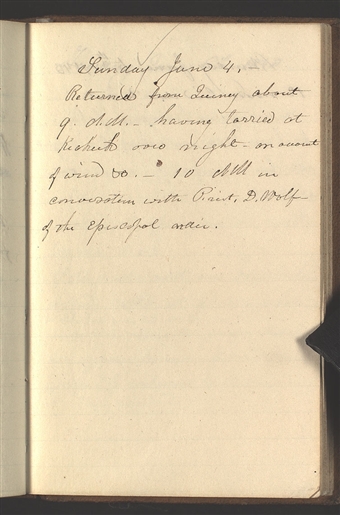 Sunday June 4.
Returned from Quincy about
9. A.M. – having tarried at
over night – on account
of wind &c. – 10 AM in
conversation with Priest. D. Wolf
of the Episcopal order.